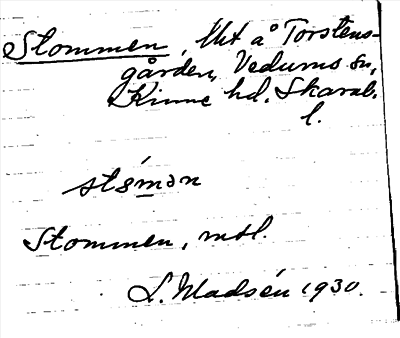 Stommen, Ht å Torstens-
gården, Vedums sn,
Kinne hd. Skarab.
l.
stómən
Stommen, mtl.
L. Madsén 1930.